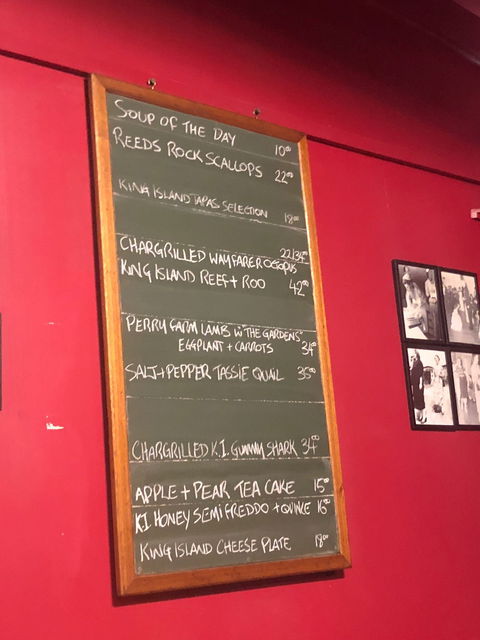 SOUP OF THE DAY 10⁰⁰
REEDS ROCK SCALLOPS 22⁰⁰
KING ISLAND TAPAS SELECTION 18⁰⁰
CHARGRILLED WAYFARER OCTOPUS 22/34⁰⁰
KING ISLAND REEF + ROO 42⁰⁰
PERRY FARM LAMB W "THE GARDENS"
EGGPLANT + CARROTS 34⁰⁰
SALT + PEPPER TASSIE QUAIL 35⁰⁰
CHARGRILLED K.I. GUMMY SHARK 34⁰⁰
APPLE + PEAR TEA CAKE 15⁰⁰
KI HONEY SEMIFREDDO + QUINCE 16⁰⁰
KING ISLAND CHEESE PLATE 18⁰⁰